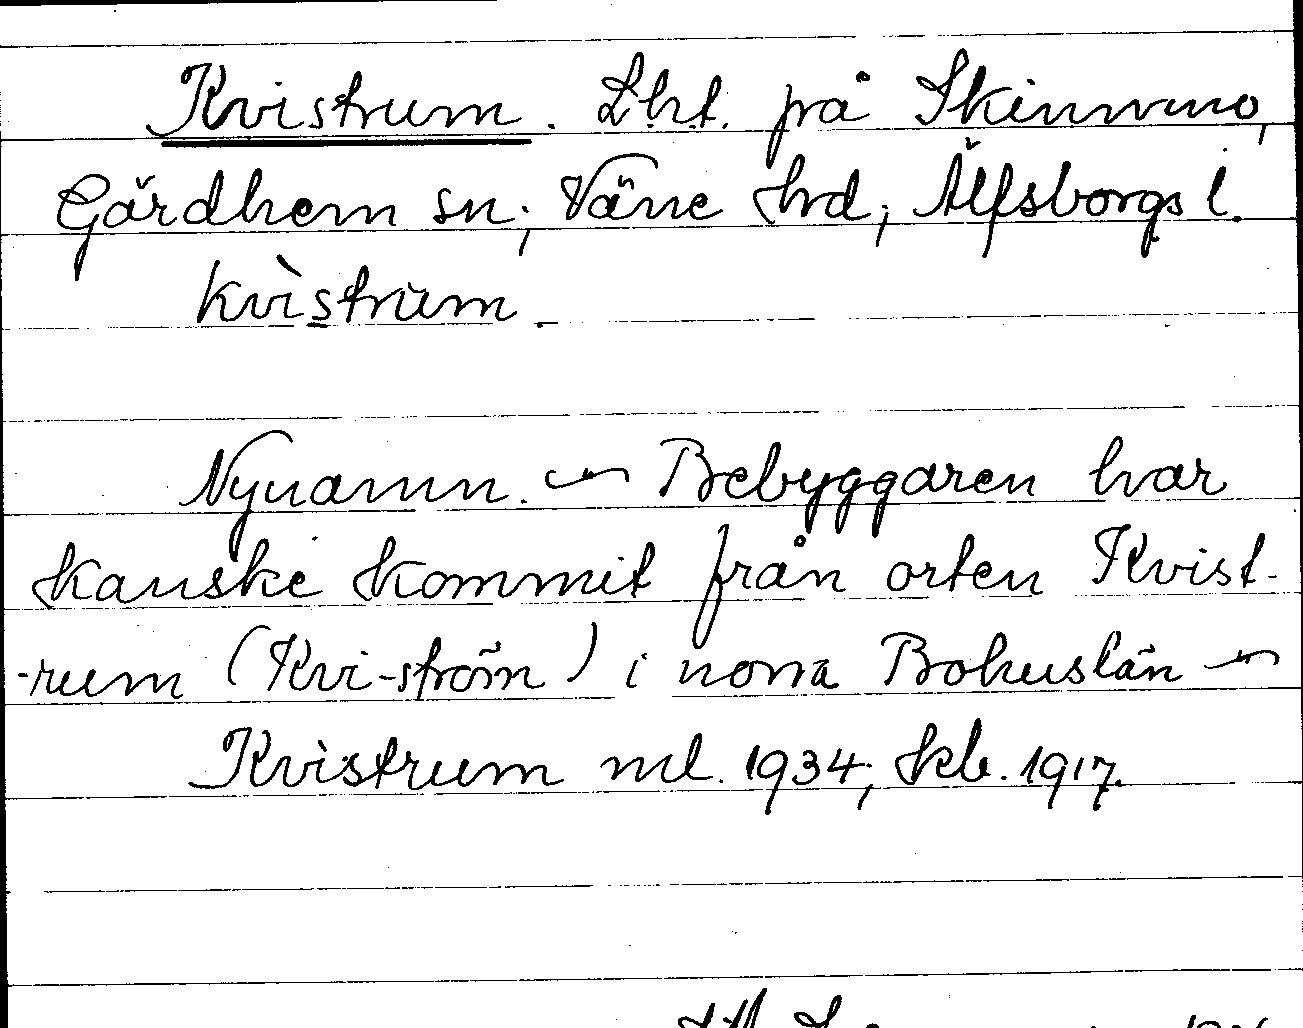 Kvistrum. Lht. på Skinnmo,
Gärdhem sn; Väne hrd; Älfsborgs l.
kvìstrum.
Nynamn. ~ Bebyggaren har
kanske kommit från orten Kvist-
-rum (Kvi-ström) i norra Bohuslän ~
Kvistrum ml. 1934, kb. 1917.